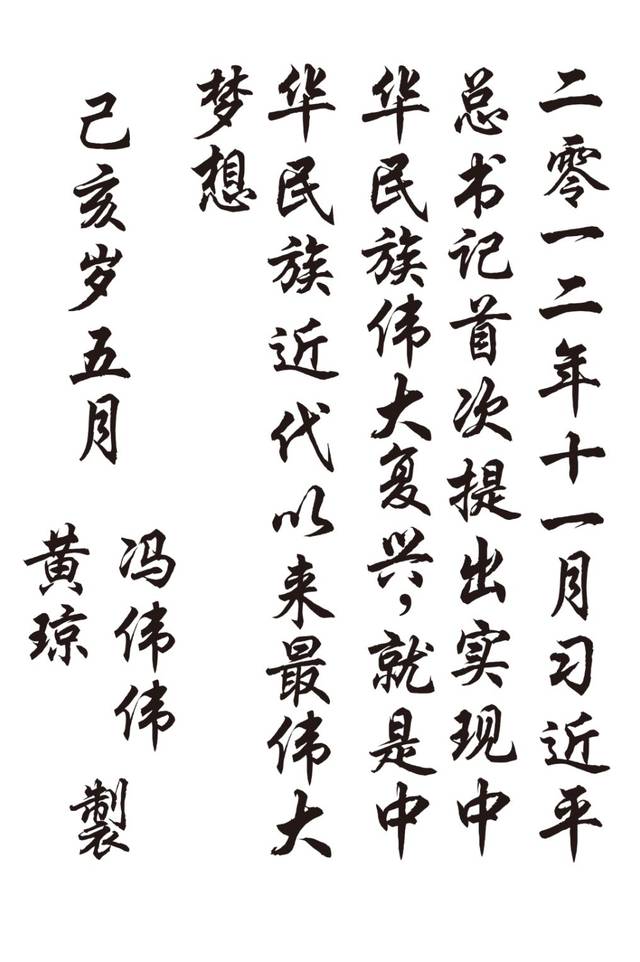 二零一二年十一月习近平
总书记首次提出实现中
华民族伟大复兴，就是中
华民族近代以来最伟大
梦想
己亥岁五月
冯伟伟
黄琼
製